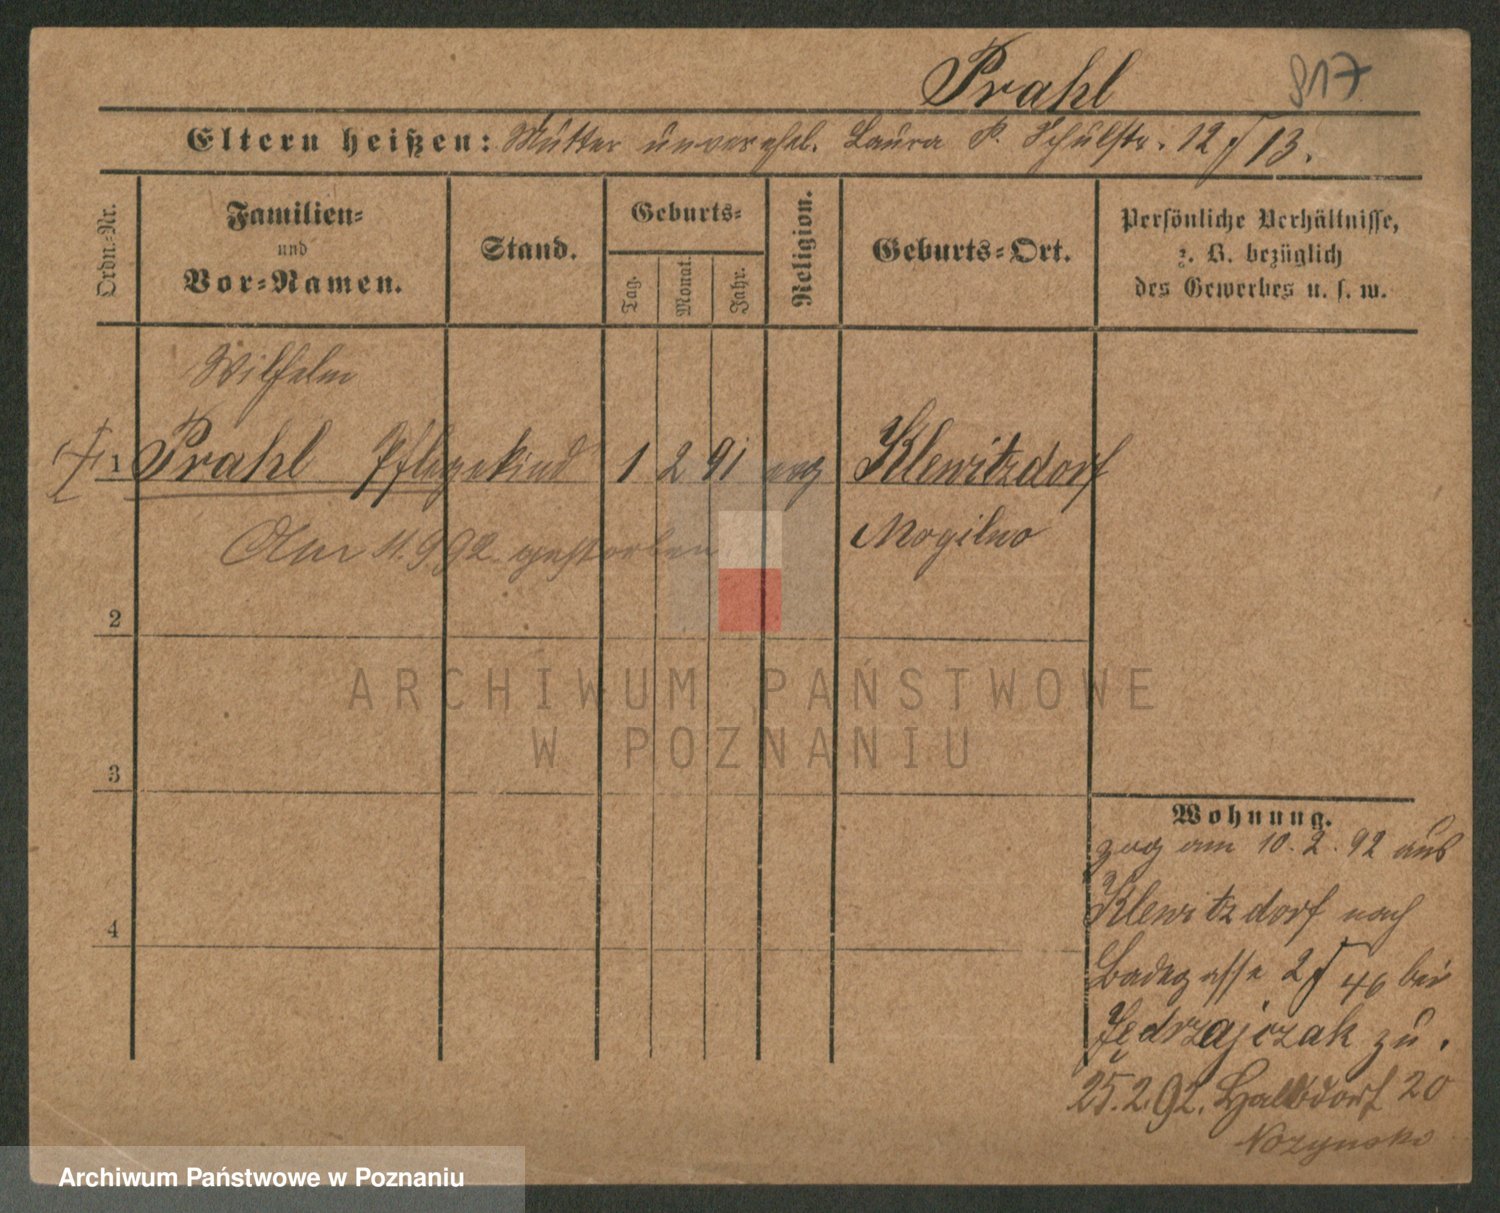 Prahl 817
Eltern heißen: Mutter unverehel. Laura P. Schulstr. 12/13.
Ordn.-Nr.
Familien-
und
Vor-Namen.
Stand.
Geburts-
Tag.
Monat.
Jahr.
Religion.
Geburts-Ort.
Persönliche Verhältnisse,
z. B. bezüglich
des Gewerbes u. s. w.
Wilhelm
1 Prahl Pflegekind 1 2 91 evg Klewitzdorf
Am 11.9.92. gestorben Mogilno
2
3
4
ARCHIWUM PAŃSTWOWE
W POZNANIU
Wohnung.
zog am 10.2.92 aus
Klewitzdorf nach
Badegasse 2/46 bei
Jędrzajczak zu.
25.2.92. Halbdorf 20
Archiwum Państwowe w Poznaniu